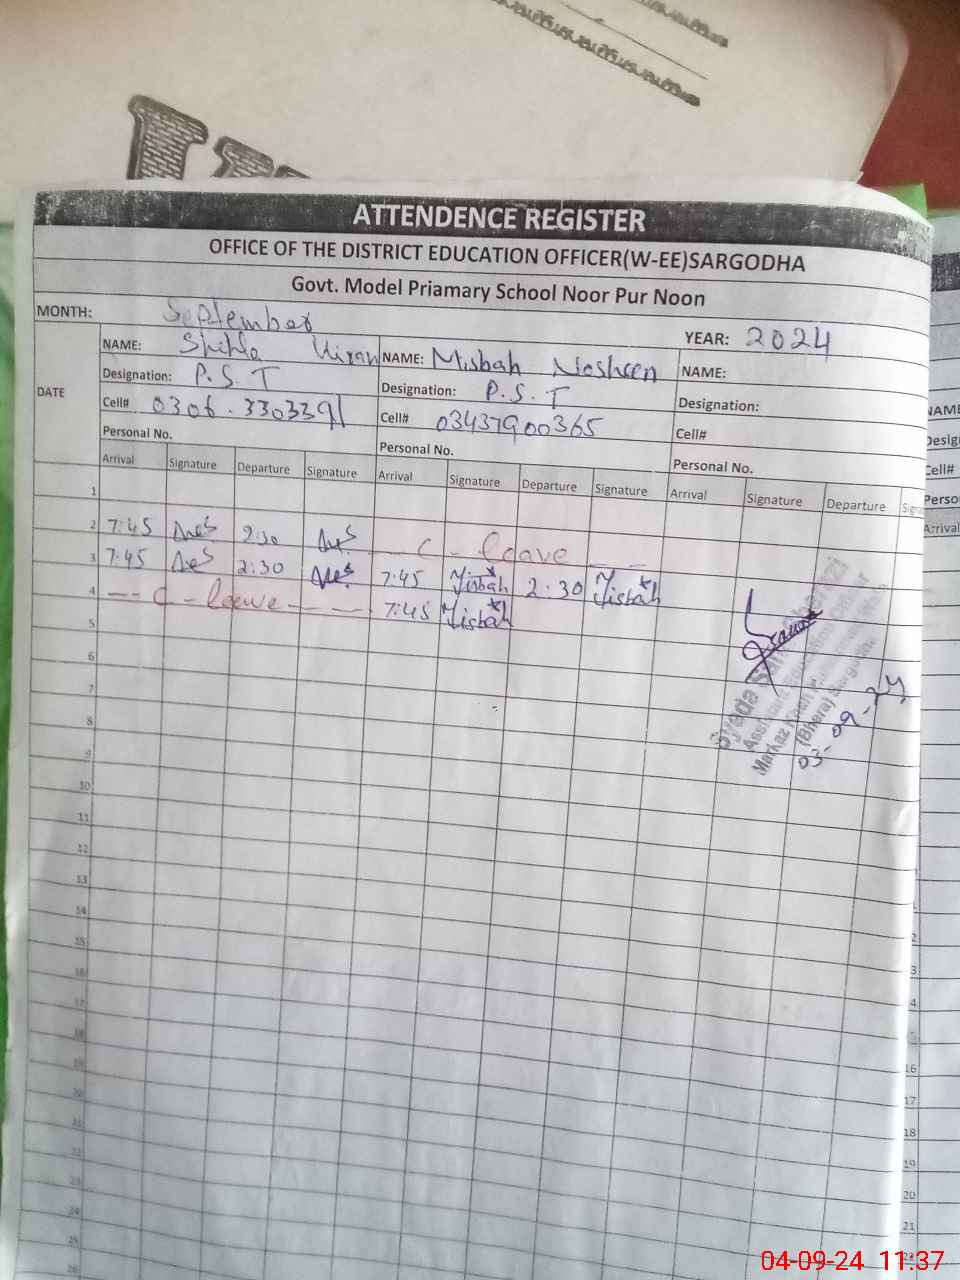 ATTENDENCE REGISTER
OFFICE OF THE DISTRICT EDUCATION OFFICER(W-EE)SARGODHA
Govt. Model Priamary School Noor Pur Noon
MONTH: September YEAR: 2024
DATE
NAME: NAME: Misbah Nosheen NAME:
Designation: P.S.T Designation: P.S.T Designation:
Cell# 0306.3303391 Cell# 03437900365 Cell#
Personal No. Personal No. Personal No.
Arrival Signature Departure Signature Arrival Signature Departure Signature Arrival Signature Departure
1
2 7:45 2:30 C - leave
3 7:45 2:30 7:45 Misbah 2:30 Misbah
4 C - leave 7:45 Misbah
5
6
7
8
9
10
11
12
13
14
15
16
17
18
19
20
21
22
23
24
25
26
Syeda
03-09-24
NAME
Cell#
Arrival
2
3
4
16
17
18
19
20
21
22
04-09-24 11:37